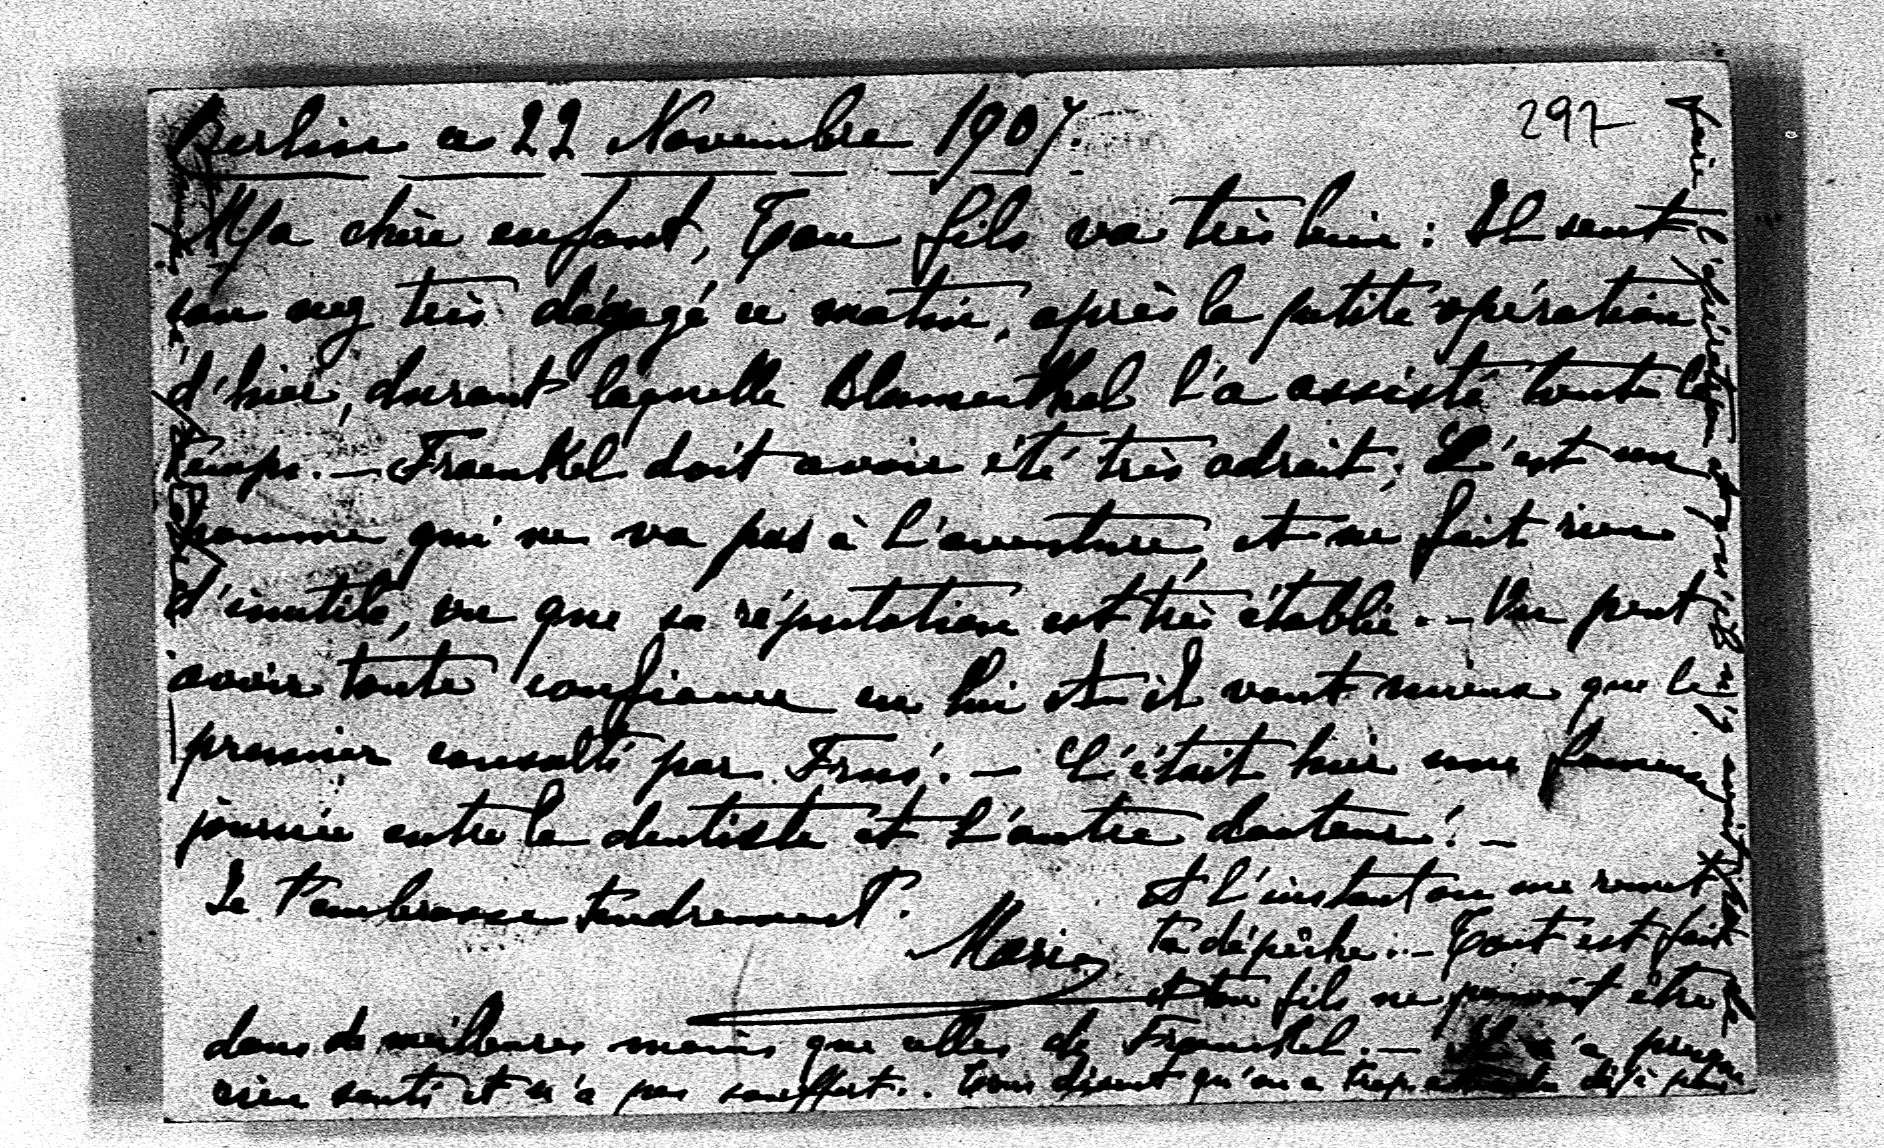 297
Berlin ce 22 Novembre 1907.
Ma chère enfant, Ton fils va très bien : Il sent
son nez très dégagé ce matin, après la petite opération
d'hier, durant laquelle Blumenthal l'a assisté tout le
temps. — Fraenkel doit avoir été très adroit ; C'est un
homme qui ne va pas à l'aventure, et ne fait rien
d'inutile, vu que sa réputation est très établie. — On peut
avoir toute confiance en lui et il vaut mieux que le
premier consulté par Frné. — C'était hier une fameuse
journée entre le dentiste et l'autre docteur ! —
Je t'embrasse tendrement.
Marie
A l'instant on me remet
ta dépêche. — Tout est fait
et ton fils ne pouvait être
dans de meilleures mains que celles de Fraenkel. — Il n'a presque
rien senti et n'a pas souffert.. tous disent qu'on a trop attendu déjà